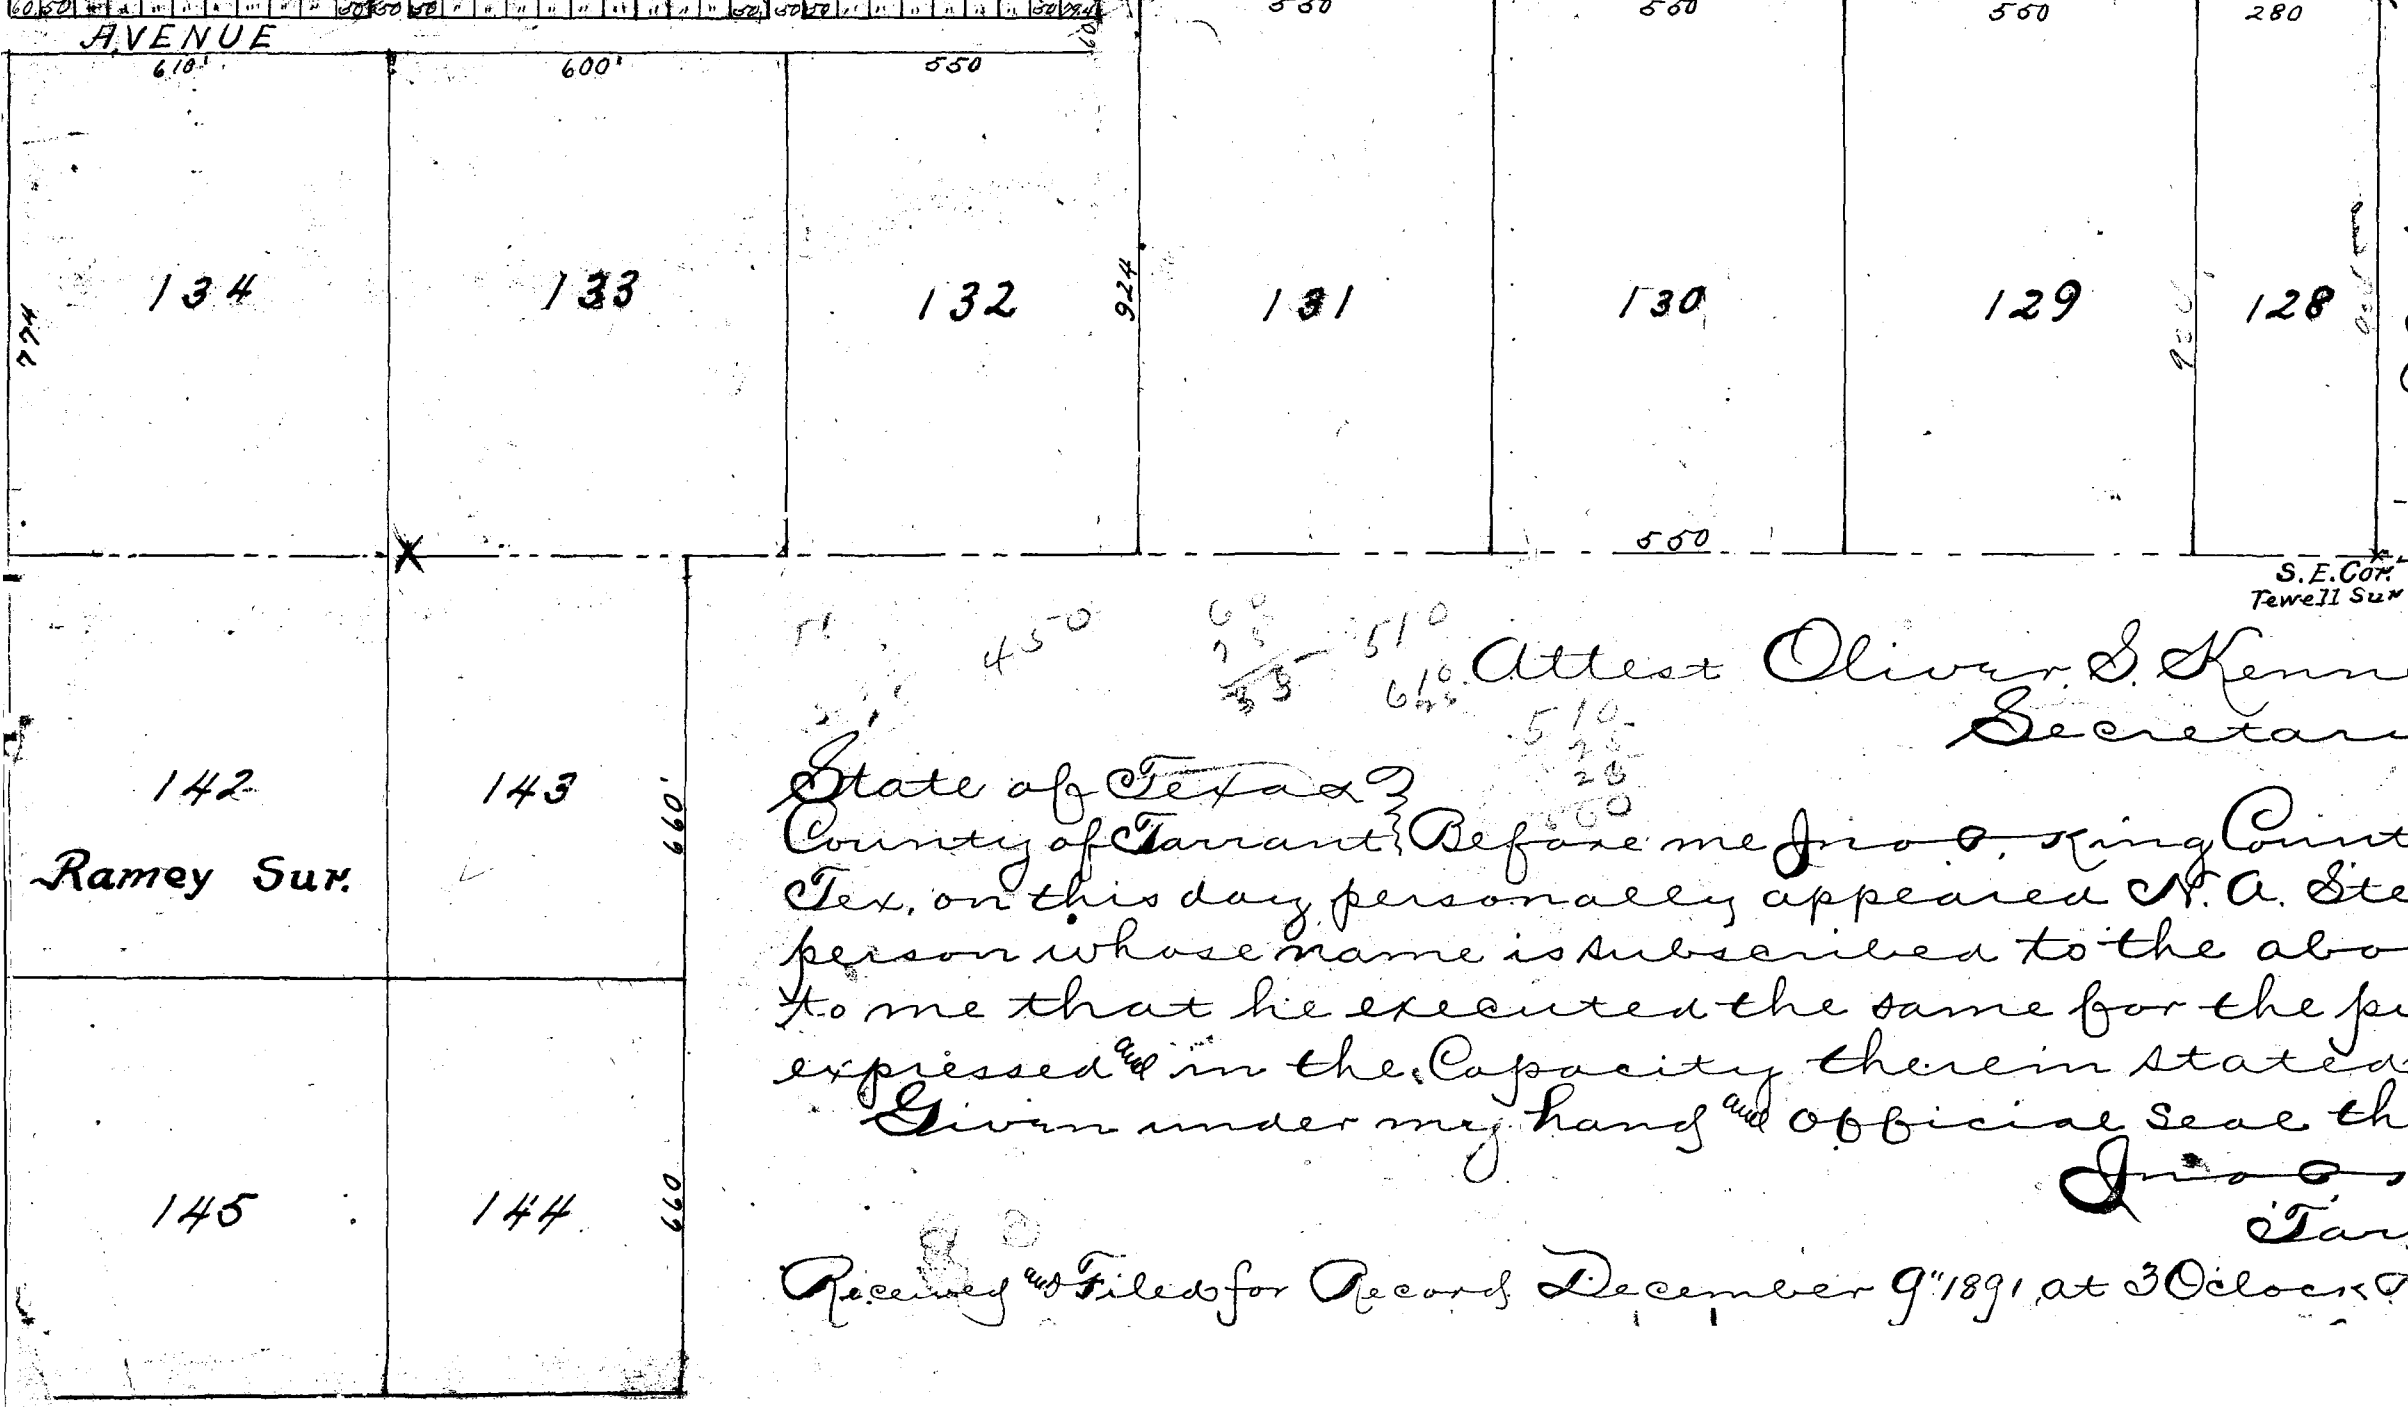 AVENUE
610'
600'
550
550
550
550
280
60
774
134
133
132
924
131
130
129
128
550
S.E. Cor.
Tewell Sur
450
510
610
510
Attest Oliver S. Kenn
Secretar
142
143
660'
Ramey Sur.
State of Texas
County of Tarrant } Before me Jno P. King Count
Tex. on this day personally appeared N. A. Ste
person whose name is subscribed to the abo
to me that he executed the same for the pu
expressed and in the Capacity therein stated
Given under my hand and official seal th
Jno
Tar
145
144
660
Received and Filed for Record December 9" 1891 at 3 Oclock P